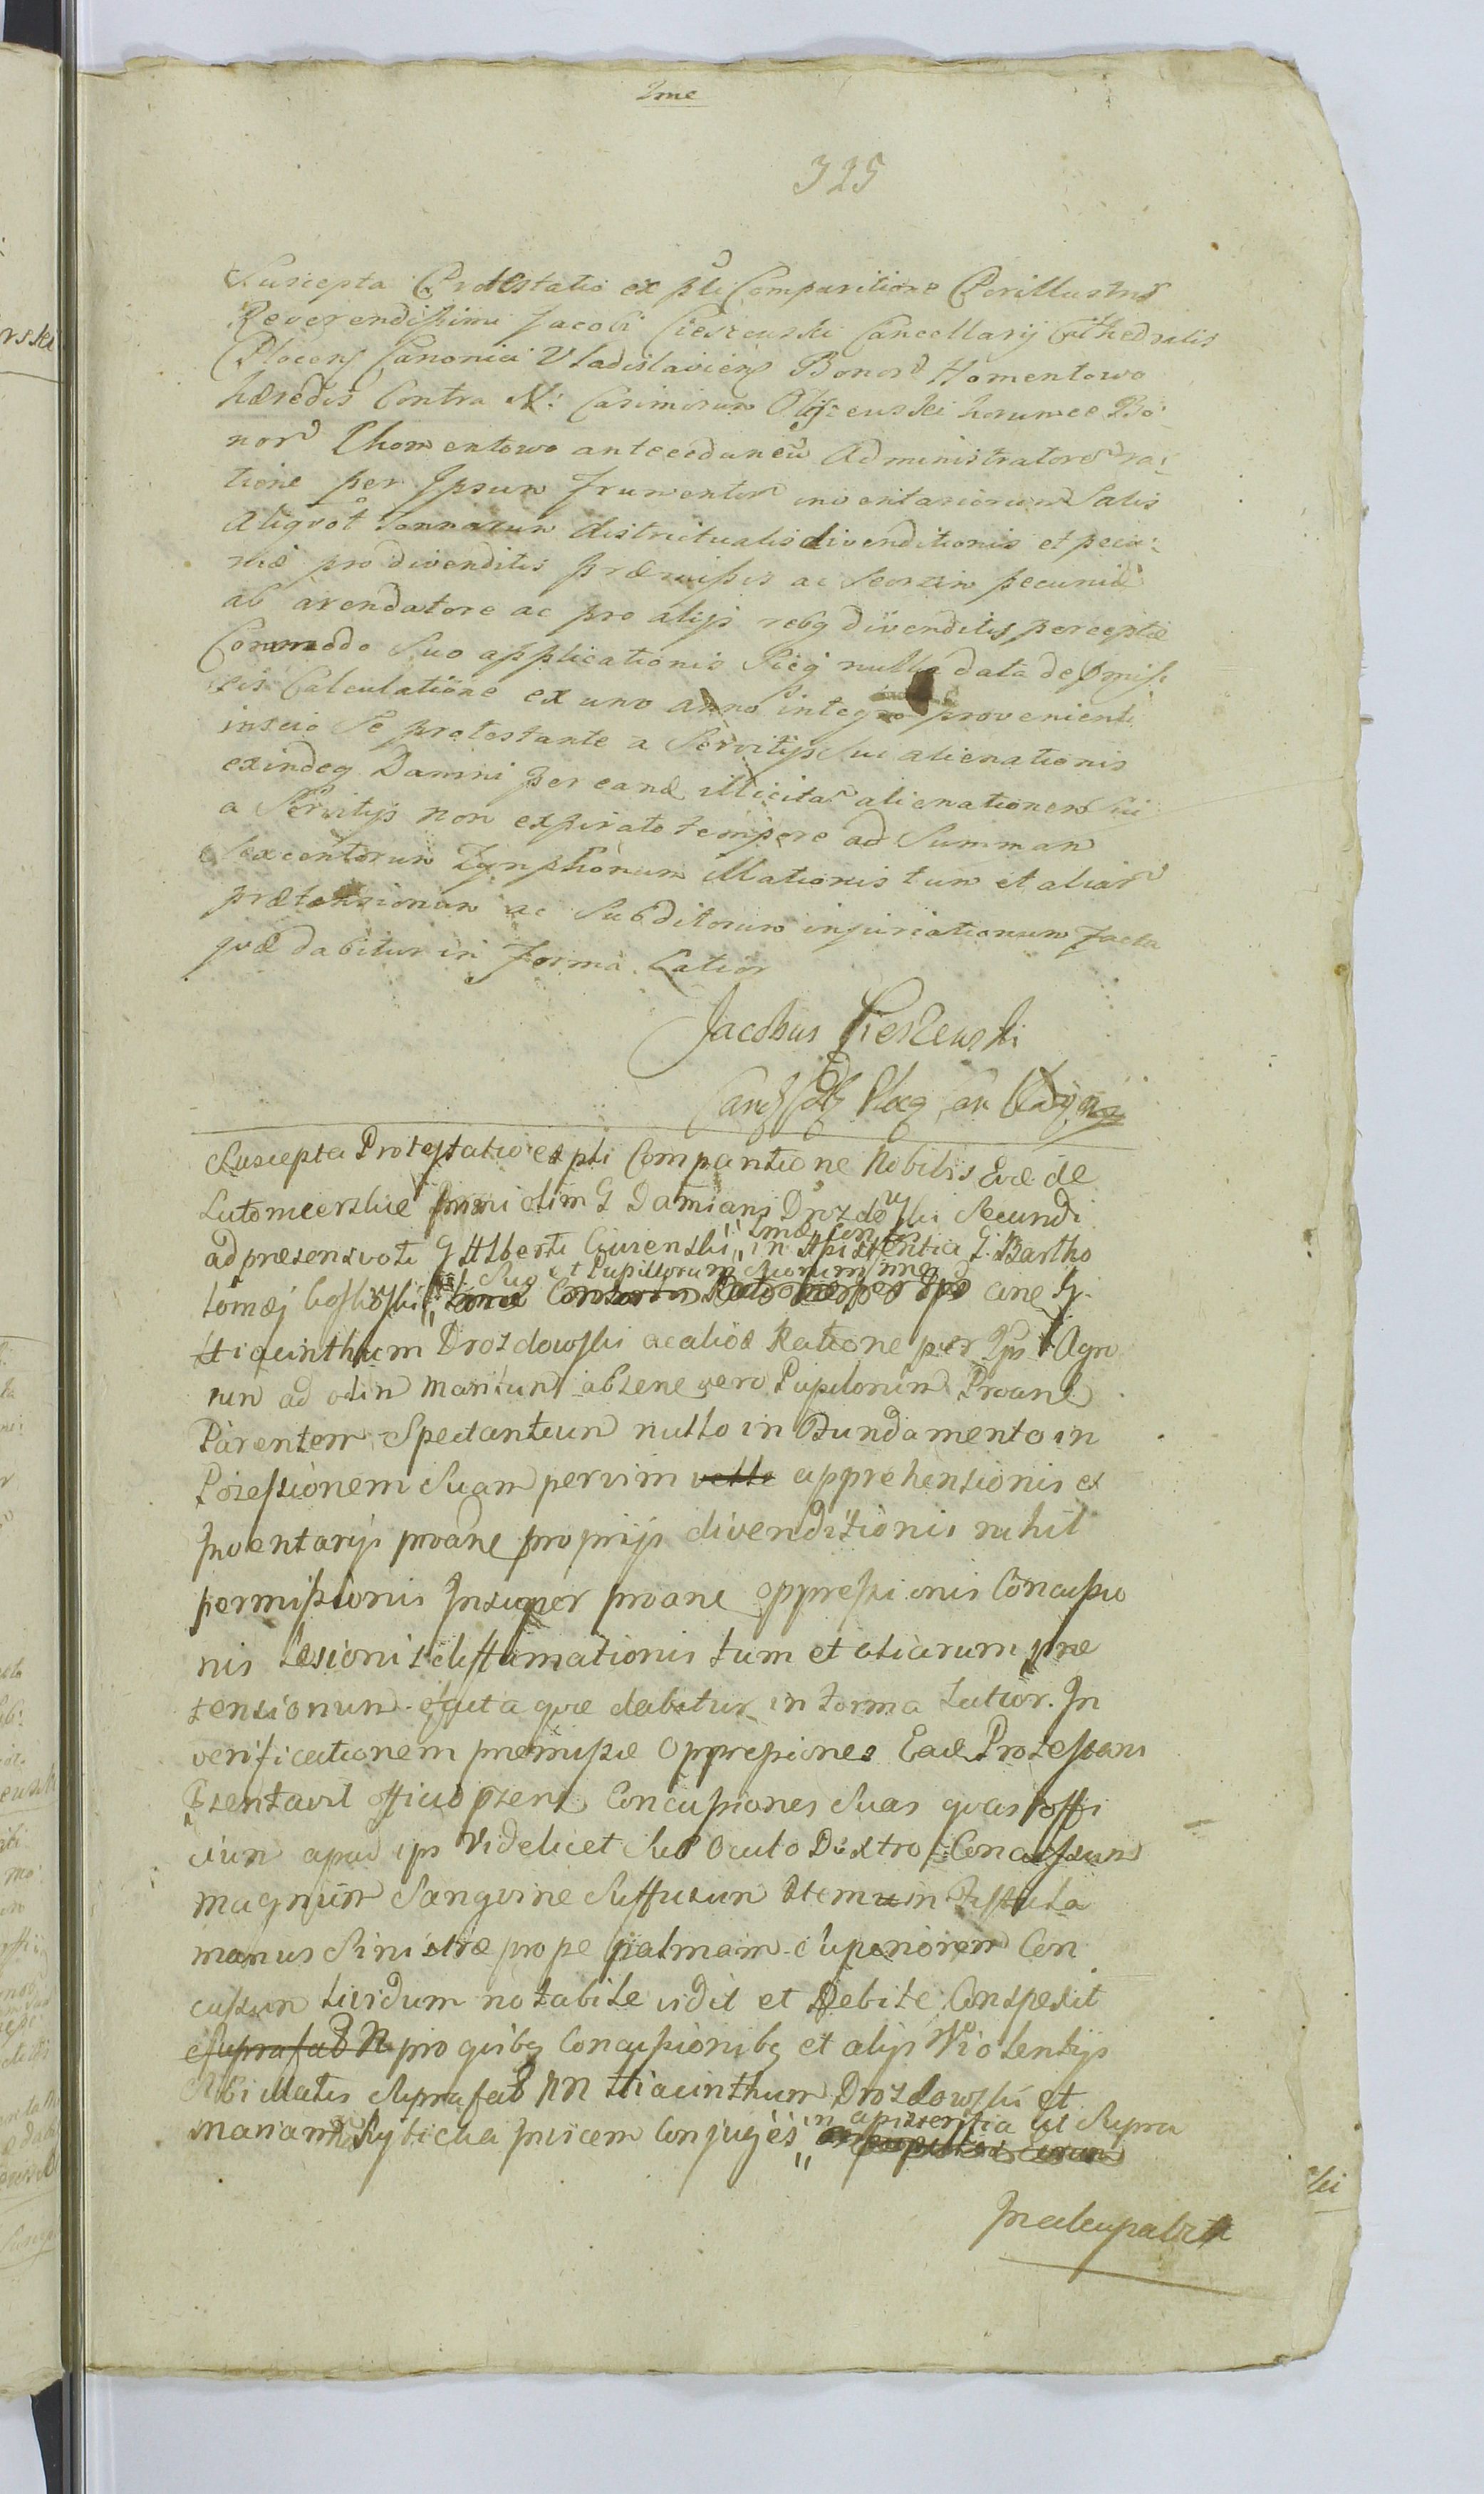 2me
325
Suscepta Protestatio ex pſti Comparitione Perillustris
Reverendiſsimi Jacobi Cieszewski Cancellarij Cathedralis
Plocenſ Canonici Vladislaviens Bonor Homentowo
hæredis Contra N: Casimirum horumce Bo:
nor Chomentowo antecedaneū Administratore ra:
tione per Ipsum Frumentor inventariorum Salis
aliqvot Tonnarum districtualis divenditionis et pecu:
niæ pro divenditis præmiſsis ac Seorsim pecuniæ
ab arendatore ac pro alijs rebq divenditis perceptæ
Commodo Suo applicationis Sicq nulla data de pmiſ
sis Calculatione ex uno anno integro provenient
inscio Se protestante a Servitijs Sui alienationis
exindeq Damni per eand illicitā alienationem Sui
a Servitijs non expirato tempore ad Summam
Sexcentorum Zynphonum Illationis tum et aliar
prætensionum ac Subditorum injuriationum facta
qvæ dabitur in Forma Latior
Jacobus Cieszewski
Suscepta Protestatio ex pſti Comparitione Nobilis Evæ de
Lutomierskie primi olim G Damiani Drozdowſki Secundi
ad præsens voti G Alberti in Aſsistentia G. Bartho
Suo et Pupillorum Suorum nne
tomæj
Hiacinthum Drozdowſki ac alios Ratione per Ips Agro
rum ad olim Maritum absene vero Pupilorum Proane
Parentem Spectantium nullo in Fundamento in
Poseſsionem Suam per vim velle apprehensionis et
Inventarijs proane proprijs divenditionis nihil
permiſsionis Insuper proane oppreſsionis Concuſsio
nis Lesionis deffamationis tum et aliarum præ
tensionum facta qvæ dabitur in Forma Latior. In
verificationem premiſsæ Oppreſsiones Eade Protestans
Psentavit officio Psens Concuſsiones Suas qvas offi
cium apud ips Videlicet Sub Oculo Dextro Concuſsum
magnum Sangvine Suffusum Item in
manus Sinistræ prope palmam Superiorem Con
cuſsum Lividum notabile vidit et Debite Conspexit
Suprafat N pro qvibq Concuſsionibq et alijs Violentijs
Sibi illatis Suprafat NN Hiacinthum Drozdowſki et
Mariann Rybicka Conjuges in aſsistentia ut Supra
Inculpabit